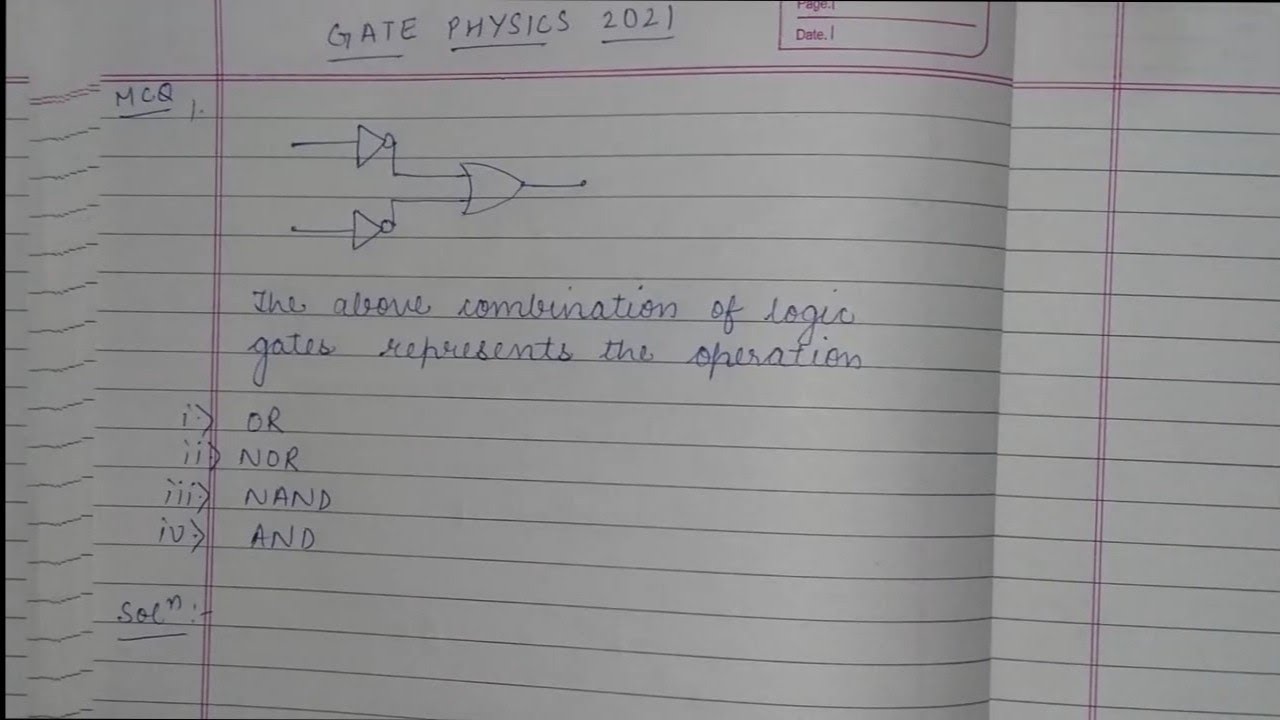 GATE PHYSICS 2021
Page.
Date.
MCQ 1.
The above combination of logic
gates represents the operation
i⟩ OR
ii⟩ NOR
iii⟩ NAND
iv⟩ AND
Solⁿ :-